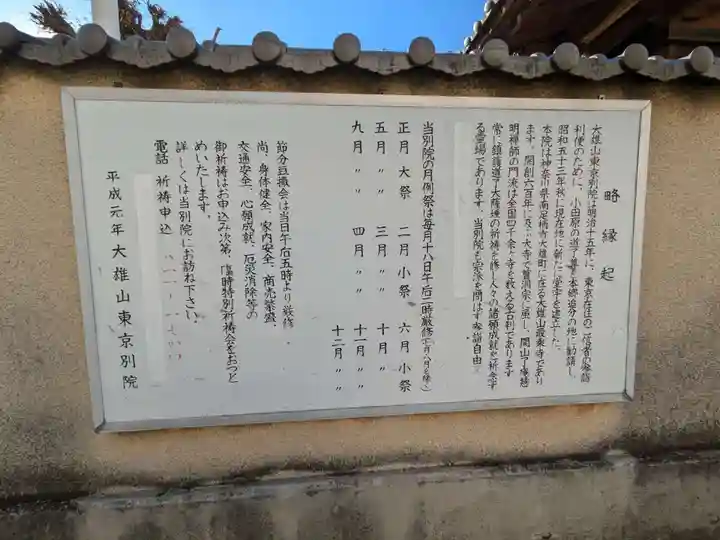 略縁起
大雄山東京別院は明治十五年に、東京在住のご信者の参詣
利便のために、小田原の道了尊を本郷追分の地に勧請し、
昭和五十三年秋に現在地に新たに堂宇を建立した。
本院は神奈川県南足柄市大雄町に在る大雄山最乗寺であり
ます。開創六百年に及ぶ大寺で曹洞宗に属し、開山了庵慧
明禅師の門流は全国四千余ヶ寺を数える古刹であります
常に鎮護道了大薩埵の祈祷を修し人々の諸願成就を祈念す
る霊場であります。当別院も宗派を問はず参詣自由
当別院の月例祭は毎月十八日午后二時厳修(七月八月を除く)
正月大祭 二月小祭 六月小祭
五月〃〃 三月〃〃 十月〃〃
九月〃〃 四月〃〃 十一月〃〃
十二月〃〃
節分豆撒会は当日午后五時より厳修.
尚、身体健全、家内安全、商売繁盛、
交通安全、心願成就、厄災消除等の
御祈祷はお申込み次第、臨時特別祈祷会をおつと
めいたします。
詳しくは当別院にお訪ね下さい。
電話 祈祷申込
平成元年 大雄山東京別院